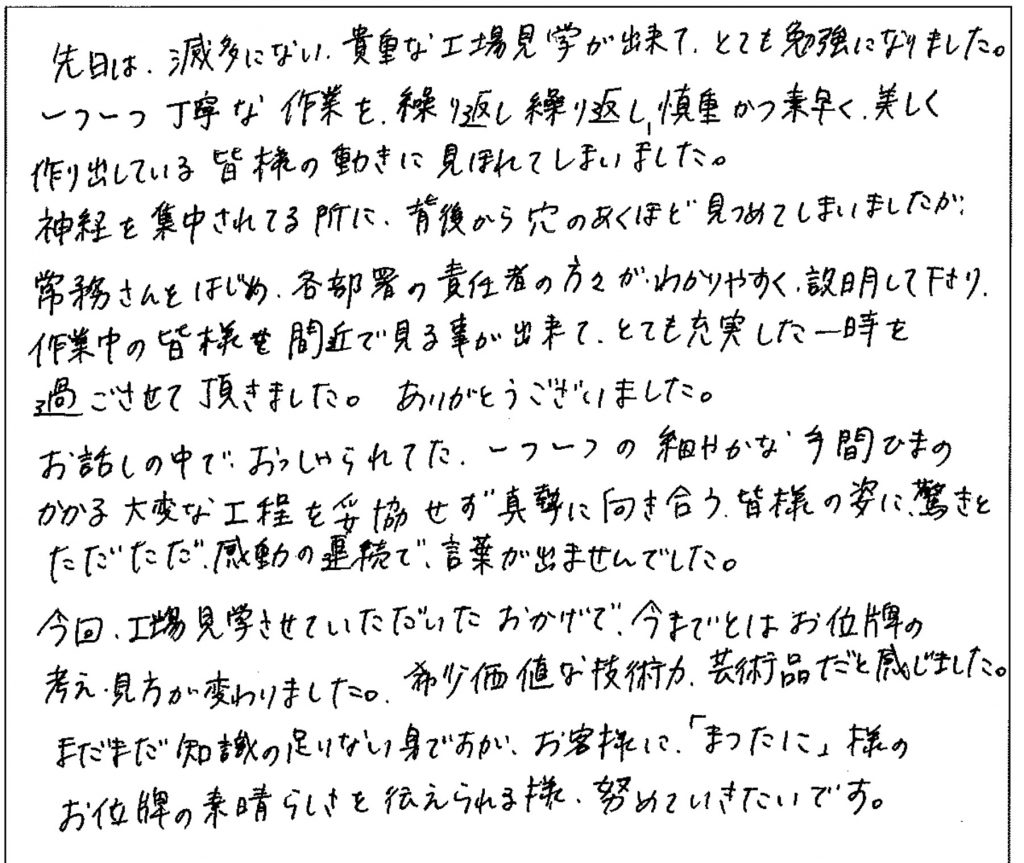 先日は、滅多にない、貴重な工場見学が出来て、とても勉強になりました。
一つ一つ丁寧な作業を、繰り返し繰り返し、慎重かつ素早く、美しく
作り出している皆様の動きに見ほれてしまいました。
神経を集中されてる所に、背後から穴のあくほど見つめてしまいましたが、
常務さんをはじめ、各部署の責任者の方々が、わかりやすく、説明して下さり、
作業中の皆様を間近で見る事が出来て、とても充実した一時を
過ごさせて頂きました。ありがとうございました。
お話しの中で、おっしゃられてた、一つ一つの細やかな手間ひまの
かかる大変な工程を妥協せず真摯に向き合う、皆様の姿に、驚きと
ただただ、感動の連続で、言葉が出ませんでした。
今回、工場見学させていただいたおかげで、今までとはお位牌の
考え、見方が変わりました。希少価値な技術力、芸術品だと感じました。
まだまだ知識の足りない身ですが、お客様に、「まつたに」様の
お位牌の素晴らしさを伝えられる様、努めていきたいです。